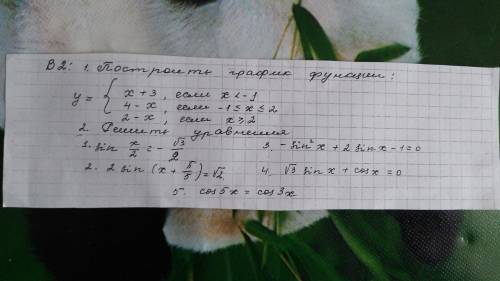 В2: 1. Построить график функции:
y = { x + 3, если x < -1
4 - x, если -1 ≤ x ≤ 2
2 - x, если x ≥ 2
2. Решить уравнения
1. sin x/2 = - √3/2
3. - sin²x + 2 sin x - 1 = 0
2. 2 sin (x + 5/5) = √2
4. √3 sin x + cos x = 0
5. cos 5x = cos 3x